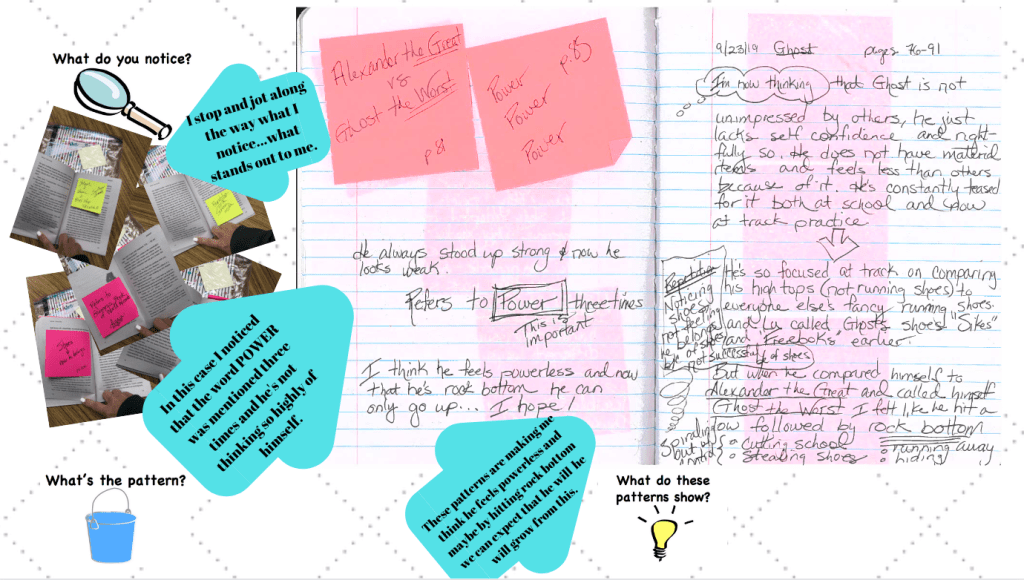 What do you notice?
I stop and jot along
the way what I
notice...what
stands out to me.
In this case I noticed
that the word POWER
was mentioned three
times and he's not
thinking so highly of
himself.
What's the pattern?
Alexander the Great
vs
Ghost the Worst
p.81
p.85
Power
Power
Power
He always stood up strong & now he
looks weak.
Refers to Power three times
This is
important
I think he feels powerless and now
that he's rock bottom he can
only go up... I hope!
These patterns are making me
think he feels powerless and
maybe by hitting rock bottom
we can expect that he will he
will grow from this.
9/23/19 Ghost pages 76-91
I'm now thinking that Ghost is not
unimpressed by others, he just
lacks self confidence and right-
fully so. He does not have material
items and feels less than others
because of it. He's constantly teased
for it both at school and now
at track practice
Repetition
Noticing
shoes
not feeling
he belongs
He's so focused at track on comparing
his high tops (not running shoes) to
everyone else's fancy running shoes.
and Lu called Ghost's shoes "Sikes"
and "Freeboks" earlier.
But when he compared himself to
Alexander the Great and called himself
Ghost the Worst I felt like he hit a
low followed by rock bottom
Spiraling
out of
control
cutting school
stealing shoes
running away
hiding
What do these
patterns show?